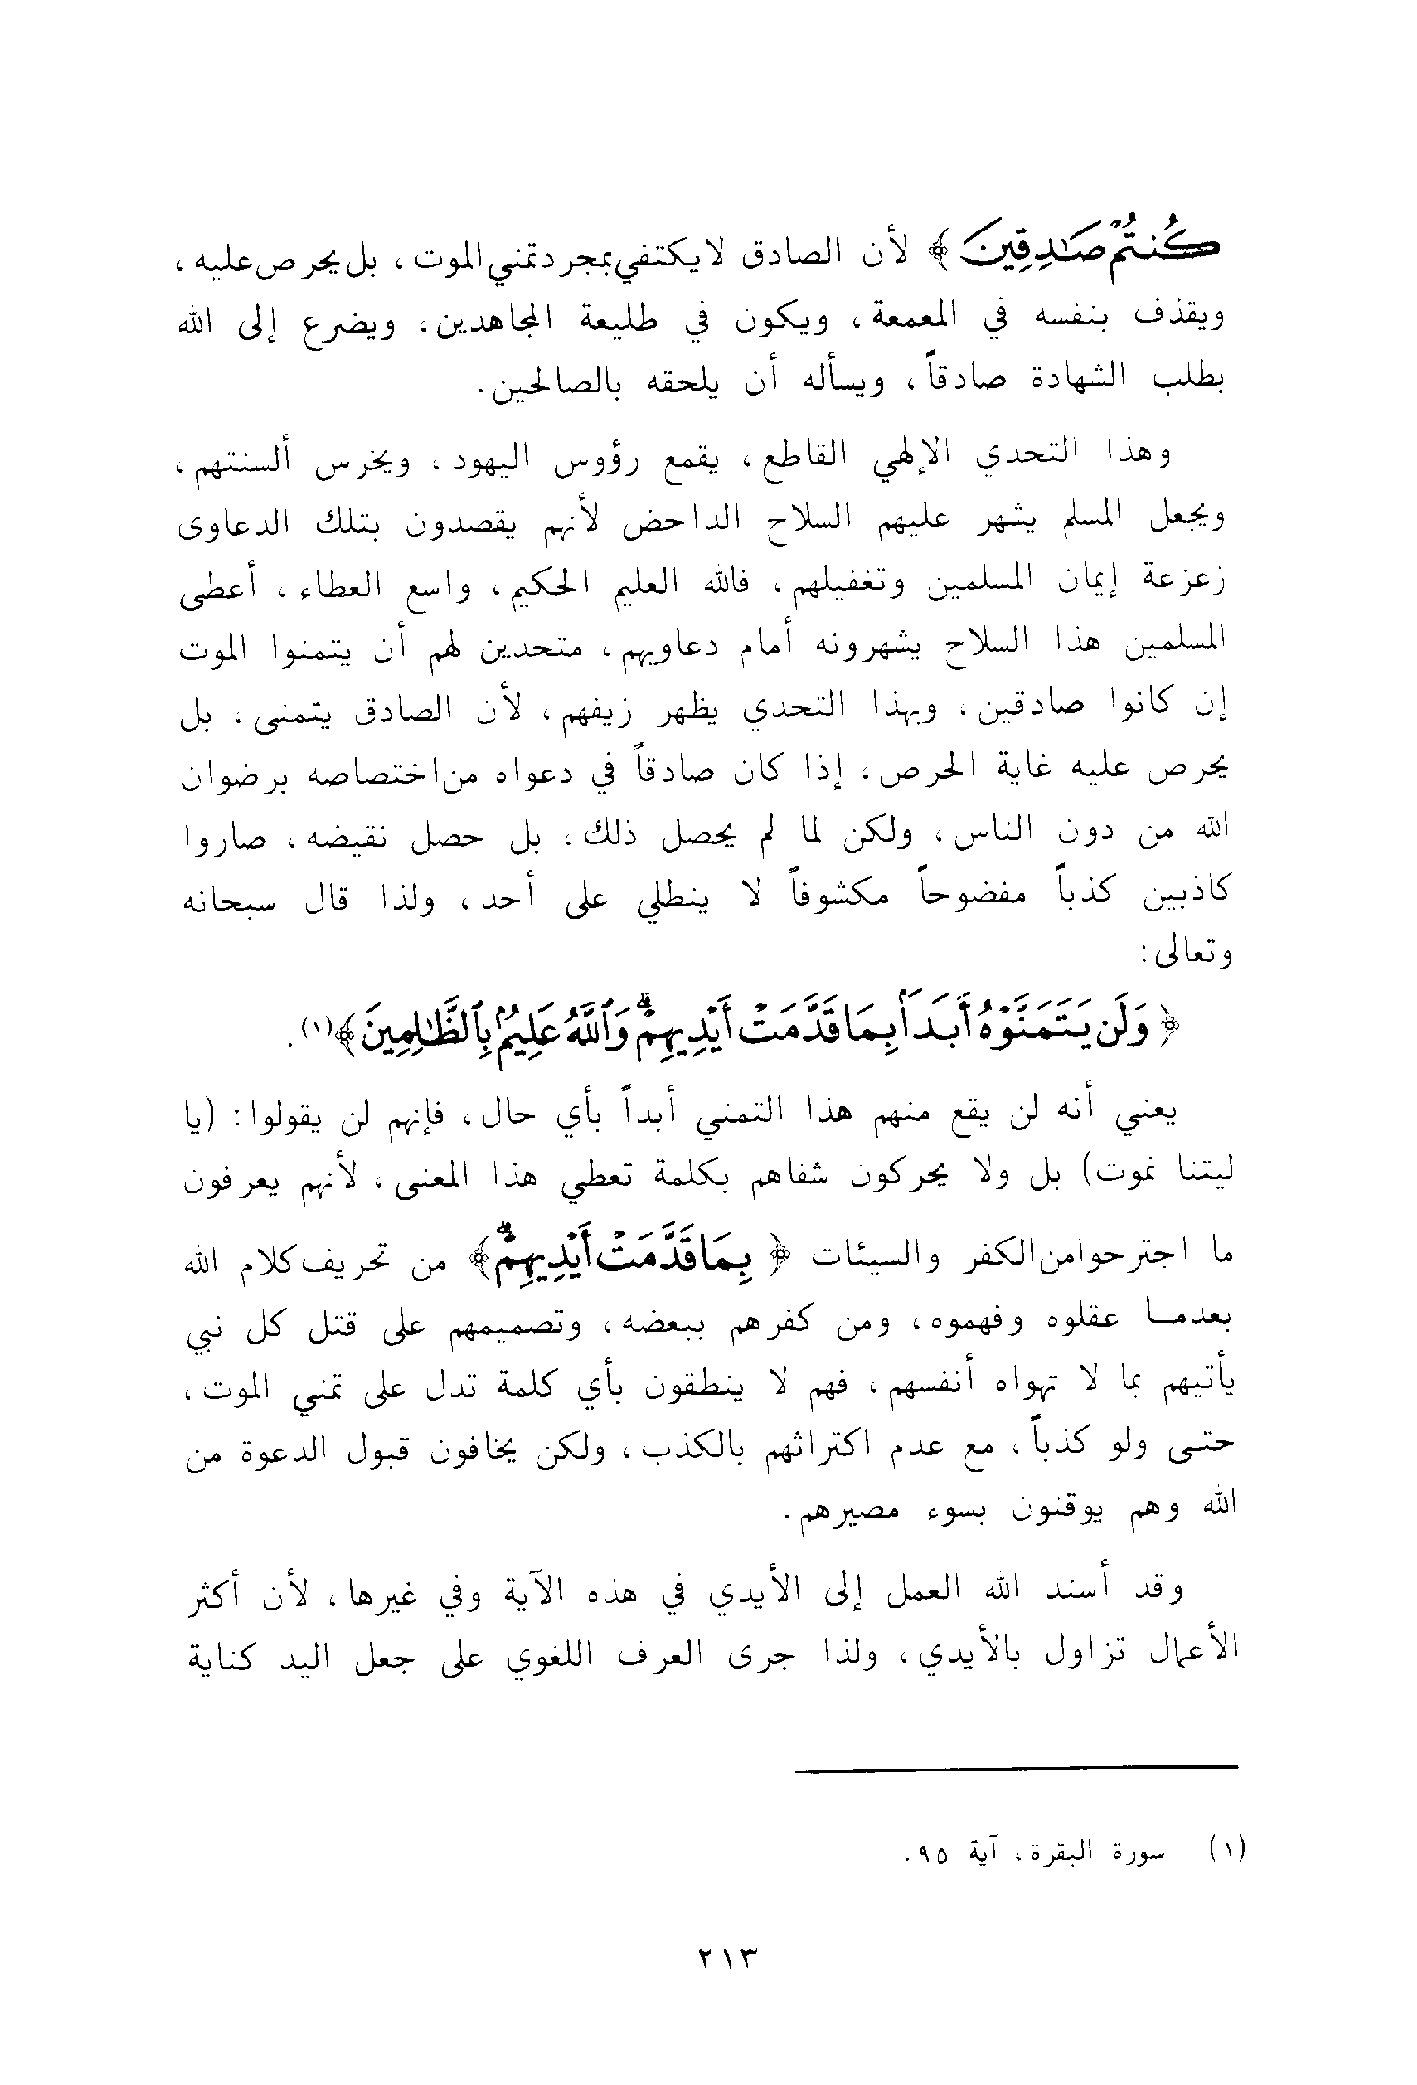 كُنتُمْ صَٰدِقِينَ ﴾ لأن الصادق لا يكتفي بمجرد تمني الموت، بل يحرص عليه،
ويقذف بنفسه في المعمعة، ويكون في طليعة المجاهدين، ويضرع إلى الله
بطلب الشهادة صادقاً، ويسأله أن يلحقه بالصالحين.
وهذا التحدي الإلهي القاطع، يقمع رؤوس اليهود، ويخرس ألسنتهم،
ويجعل المسلم يشهر عليهم السلاح الداحض لأنهم يقصدون بتلك الدعاوى
زعزعة إيمان المسلمين وتغفيلهم، فالله العليم الحكيم، واسع العطاء، أعطى
المسلمين هذا السلاح يشهرونه أمام دعاويهم، متحدين لهم أن يتمنوا الموت
إن كانوا صادقين، وبهذا التحدي يظهر زيفهم، لأن الصادق يتمنى، بل
يحرص عليه غاية الحرص، إذا كان صادقاً في دعواه من اختصاصه برضوان
الله من دون الناس، ولكن لما لم يحصل ذلك، بل حصل نقيضه، صاروا
كاذبين كذباً مفضوحاً مكشوفاً لا ينطلي على أحد، ولذا قال سبحانه
وتعالى:
﴿ وَلَن يَتَمَنَّوْهُ أَبَدَۢا بِمَا قَدَّمَتْ أَيْدِيهِمْۗ وَٱللَّهُ عَلِيمُۢ بِٱلظَّٰلِمِينَ ﴾(١).
يعني أنه لن يقع منهم هذا التمني أبداً بأي حال، فإنهم لن يقولوا: (يا
ليتنا نموت) بل ولا يحركون شفاهم بكلمة تعطي هذا المعنى، لأنهم يعرفون
ما اجترحوا من الكفر والسيئات ﴿ بِمَا قَدَّمَتْ أَيْدِيهِمْۗ ﴾ من تحريف كلام الله
بعدما عقلوه وفهموه، ومن كفرهم ببعضه، وتصميمهم على قتل كل نبي
يأتيهم بما لا تهواه أنفسهم، فهم لا ينطقون بأي كلمة تدل على تمني الموت،
حتى ولو كذباً، مع عدم اكتراثهم بالكذب، ولكن يخافون قبول الدعوة من
الله وهم يوقنون بسوء مصيرهم.
وقد أسند الله العمل إلى الأيدي في هذه الآية وفي غيرها، لأن أكثر
الأعمال تزاول بالأيدي، ولذا جرى العرف اللغوي على جعل اليد كناية
(١) سورة البقرة، آية ٩٥.
٢١٣